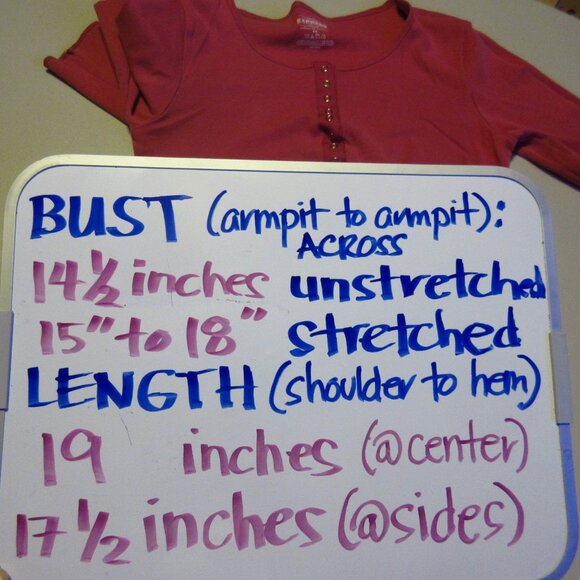 EXPRESS
BUST (armpit to armpit):
ACROSS
14 1/2 inches unstretched
15" to 18" stretched
LENGTH (shoulder to hem)
19 inches (@center)
17 1/2 inches (@sides)